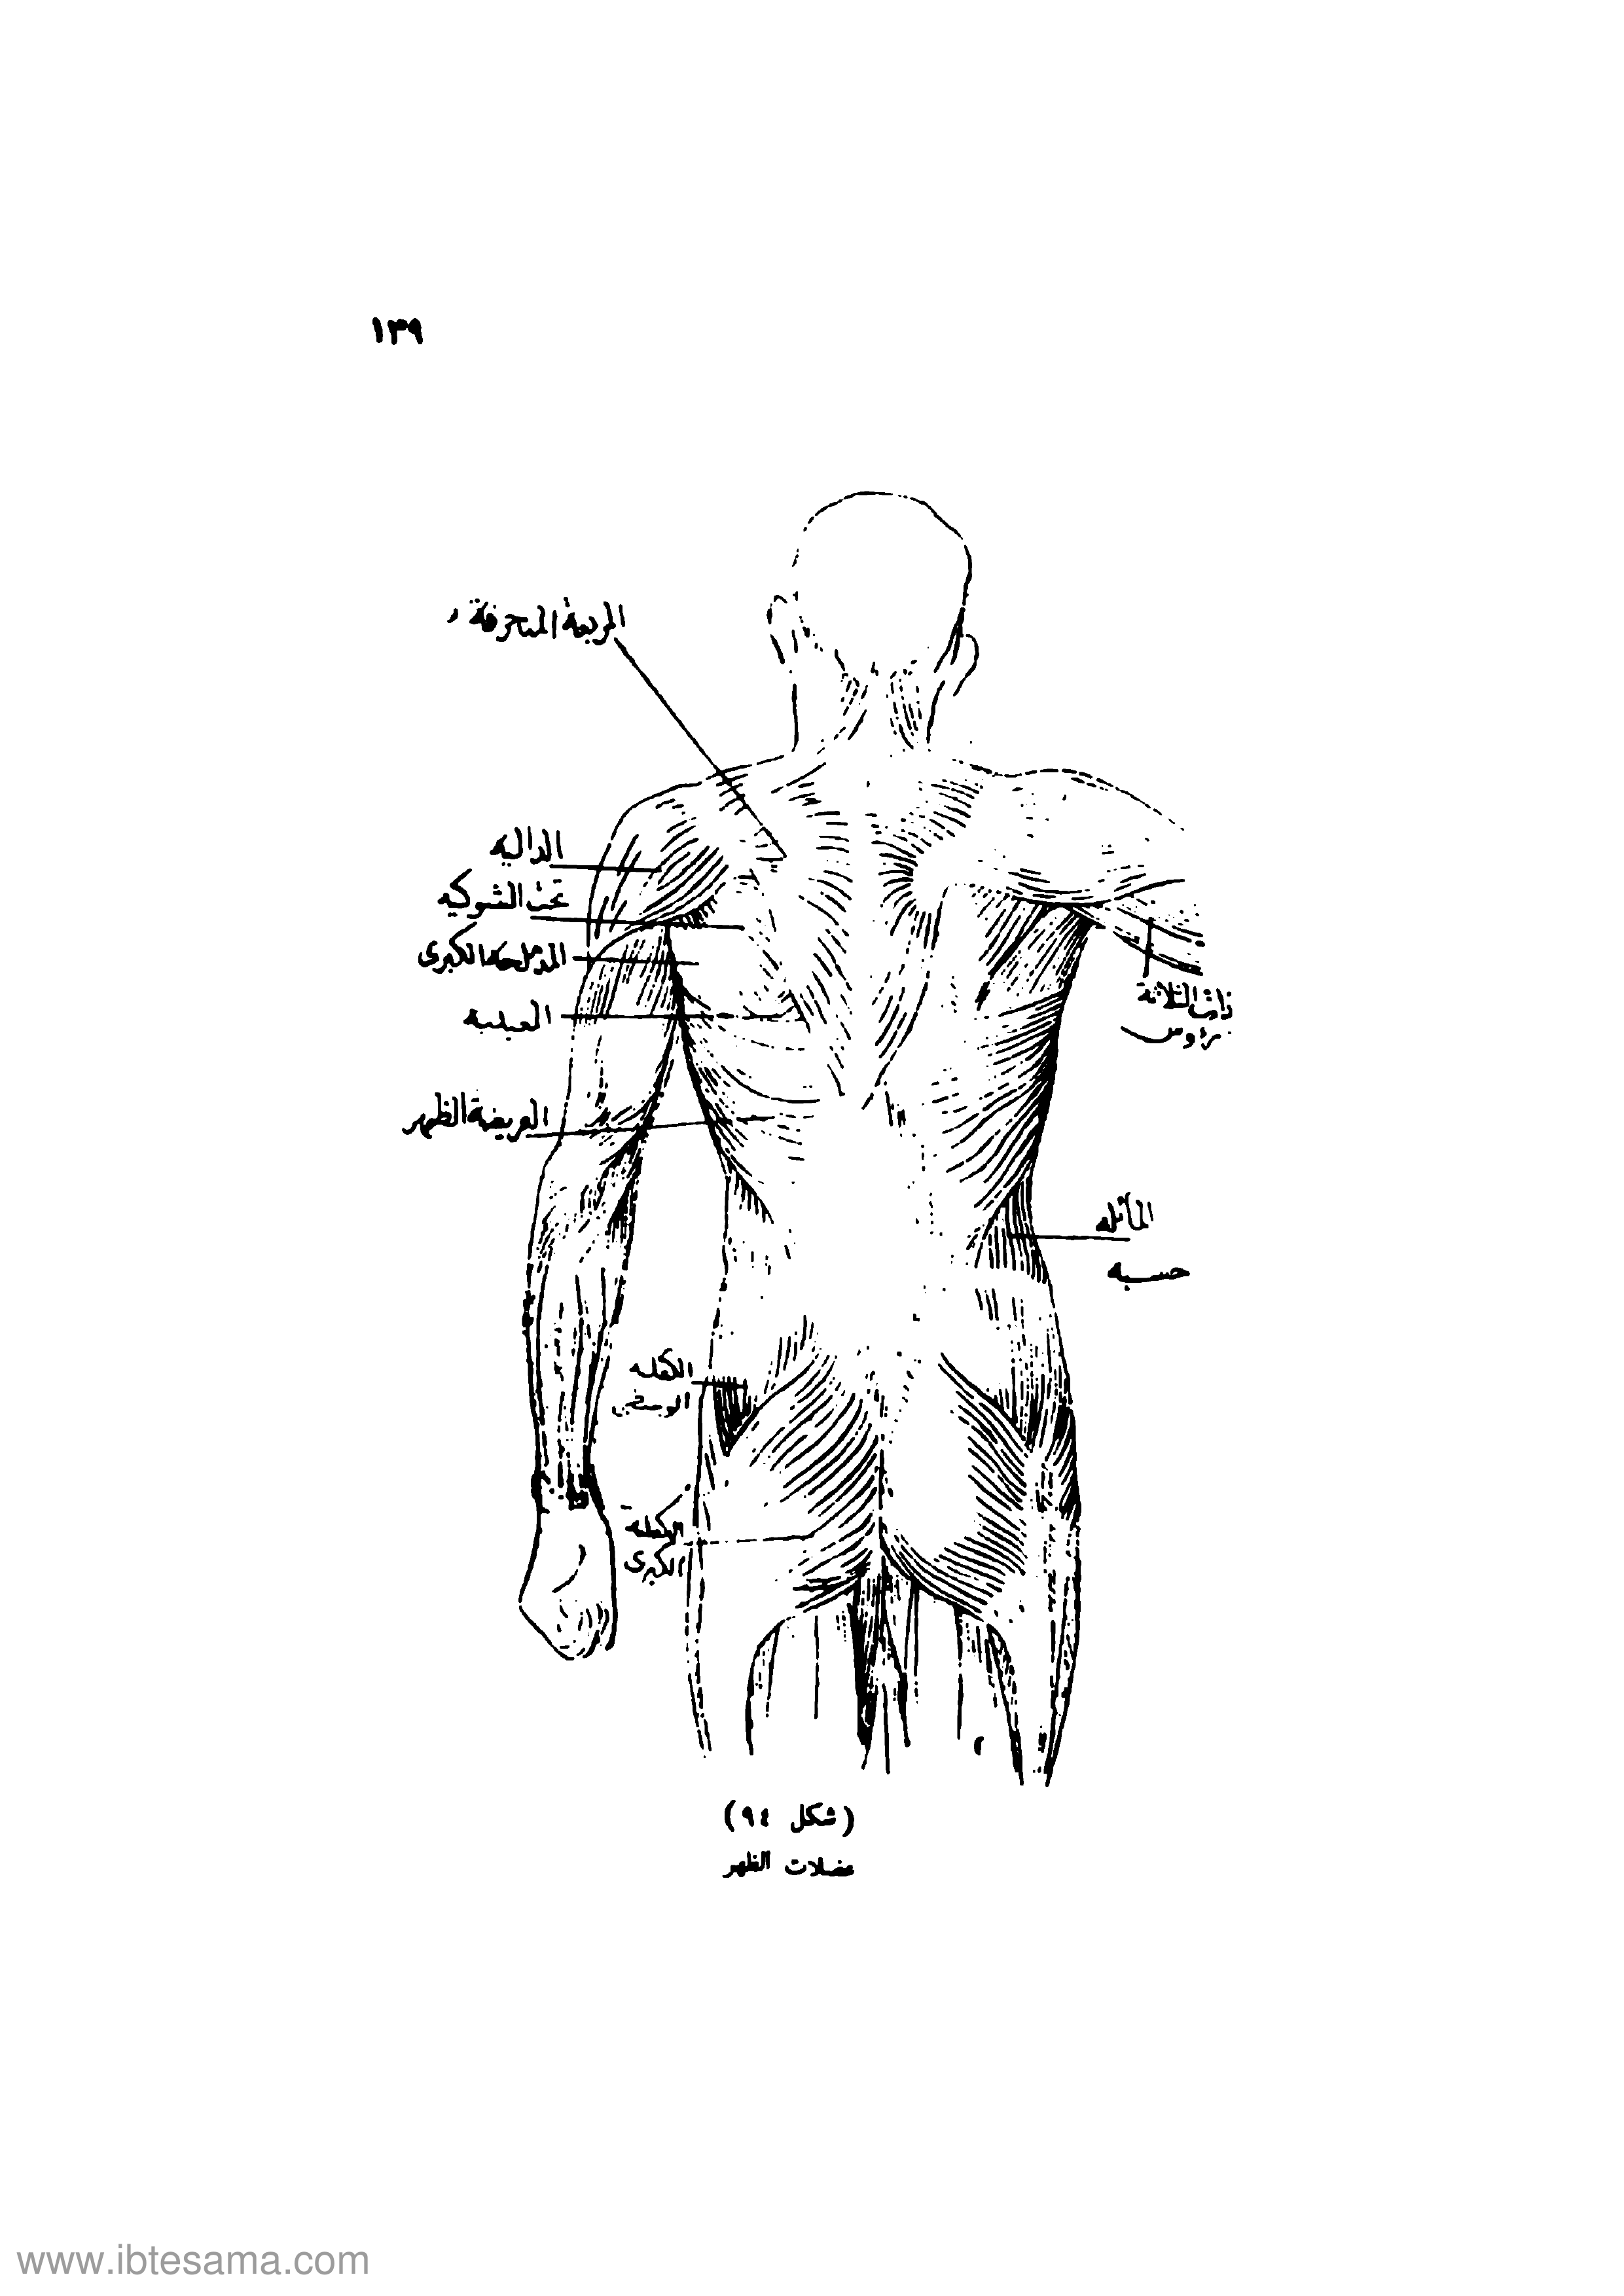 ١٣٩
المربعة المنحرفة
الدالية
تحت الشوكيه
الكبرى
المعينية
العريضة الظهر
ذات الثلاثة
رؤوس
المائله
الوسطى
الكبرى
(شكل ٩٤)
عضلات الظهر
www.ibtesama.com